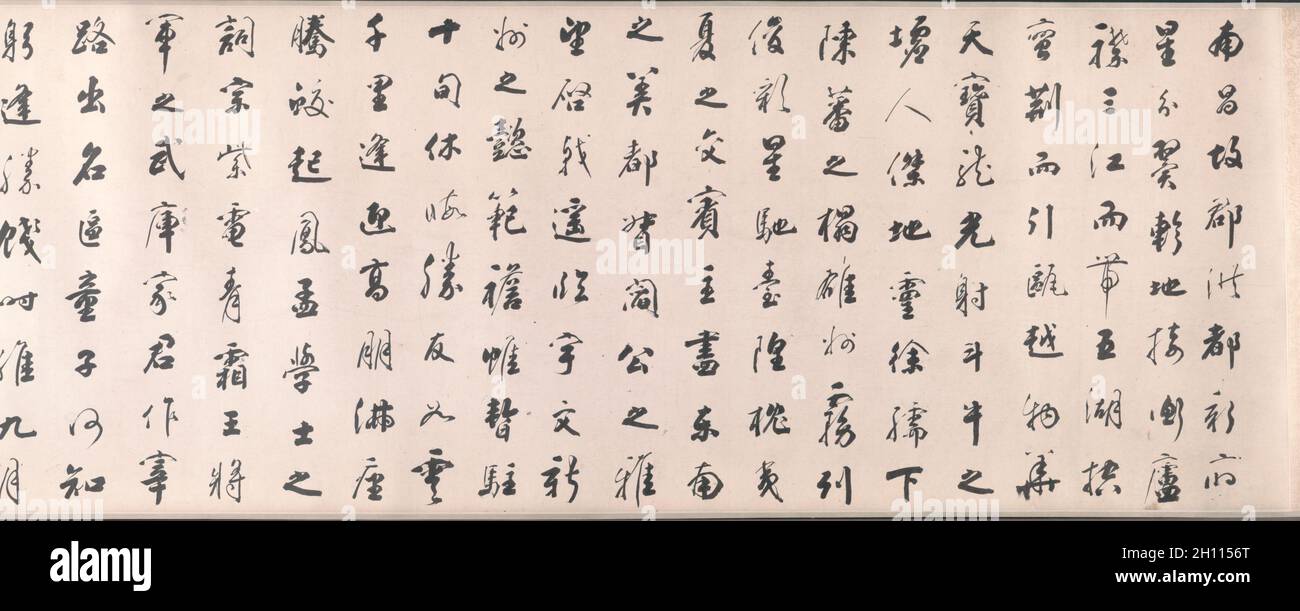 南昌故郡洪都新府
星分翼軫地接衡廬
襟三江而帶五湖控
蠻荊而引甌越物華
天寶龍光射斗牛之
墟人傑地靈徐孺下
陳蕃之榻雄州霧列
俊彩星馳臺隍枕夷
夏之交賓主盡東南
之美都督閻公之雅
望啓戟遙臨宇文新
州之懿範襜帷暫駐
十旬休暇勝友如雲
千里逢迎高朋滿座
騰蛟起鳳孟學士之
詞宗紫電青霜王將
軍之武庫家君作宰
路出名區童子何知
躬逢勝餞時維九月
alamy
Image ID: 2H1156T
www.alamy.com